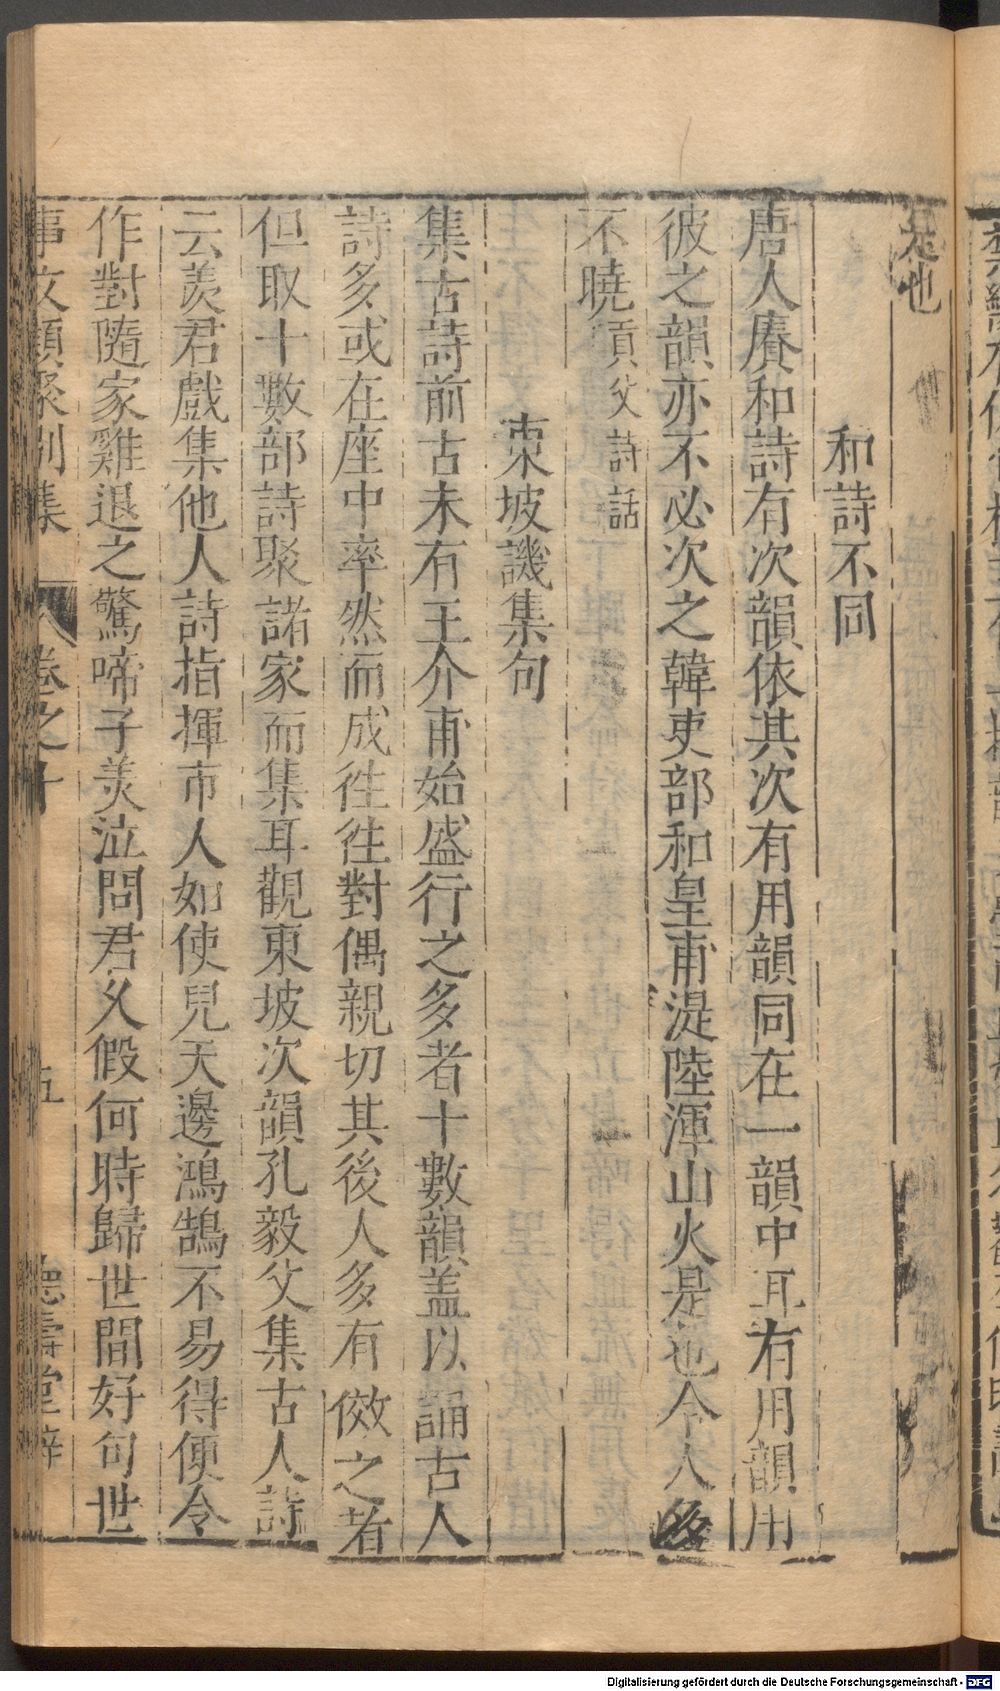 是也
和詩不同
唐人賡和詩有次韻依其次有用韻同在一韻中耳有用韻用
彼之韻亦不必次之韓吏部和皇甫湜陸渾山火是也今人多
不曉貢父詩話
東坡譏集句
集古詩前古未有王介甫始盛行之多者十數韻盖以誦古人
詩多或在座中率然而成徃徃對偶親切其後人多有傚之者
但取十數部詩聚諸家而集耳觀東坡次韻孔毅父集古人詩
云羨君戲集他人詩指揮市人如使兒天邊鴻鵠不易得便令
作對隨家雞退之驚啼子美泣問君乆假何時歸世間好句世
事文類聚別集 卷之十 五 德壽堂梓
Digitalisierung gefördert durch die Deutsche Forschungsgemeinschaft - DFG